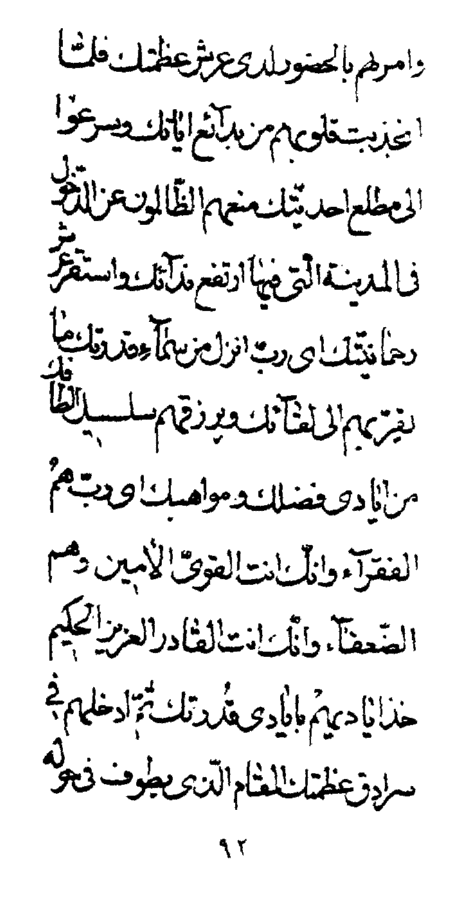 وامرتهم بالحضور لدى عرش عظمتك فلمّا
انجذبت قلوبهم من بدآئع اياتك وسرعوا
الى مطلع احديّتك منعهم الظّالمون عن الدّخول
فى المدينة الّتى فيها ارتفع ندآئك واستقرّ عرش
رحمانيّتك اى ربّ انزل من سمآء قدرتك ما
يقرّبهم الى لقآئك ويرزقهم سلسبيل الطافك
من ايادى فضلك ومواهبك اى ربّ هم
الفقرآء وانّك انت القوىّ الامين وهم
الضّعفآء وانّك انت القادر العزيز الحكيم
خذ اياديهم بايادى قدرتك ثمّ ادخلهم فى
سرادق عظمتك المقام الّذى يطوف فى حوله
٩٢